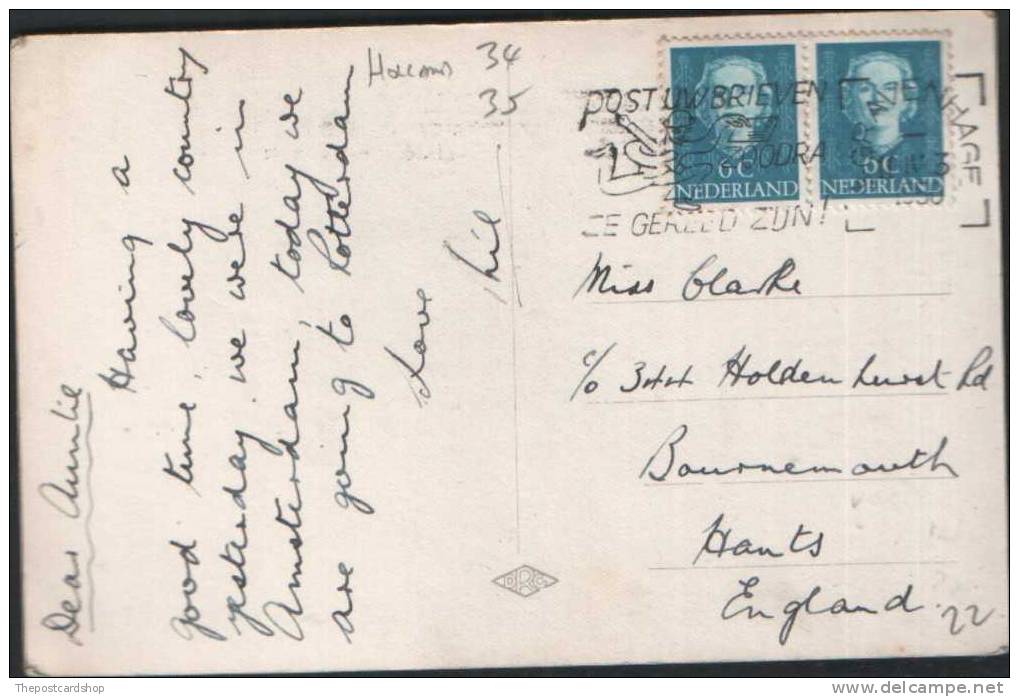 Dear Auntie
Having a
good time, lovely country
yesterday we were in
Amsterdam, today we
are going to Rotterdam
Love
Lil
Holland
34
35
POST UW BRIEVEN
ZODRA
ZE GEREED ZIJN!
6 C
NEDERLAND
6 C
NEDERLAND
1950
Miss Clarke
c/o 344 Holdenhurst Rd
Bournemouth
Hants
England
22
DRC
Thepostcardshop
www.delcampe.net